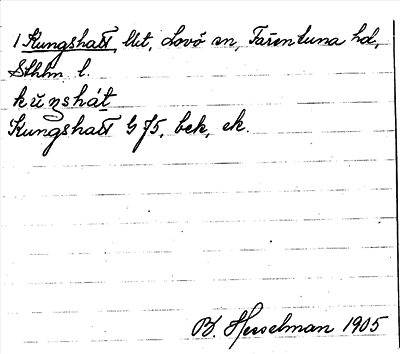 1 Kungshatt, lkt, Lovö sn, Färentuna hd,
Sthlm l.
kuŋshát
Kungshatt G 75, bek, ek.
B. Hesselman 1905